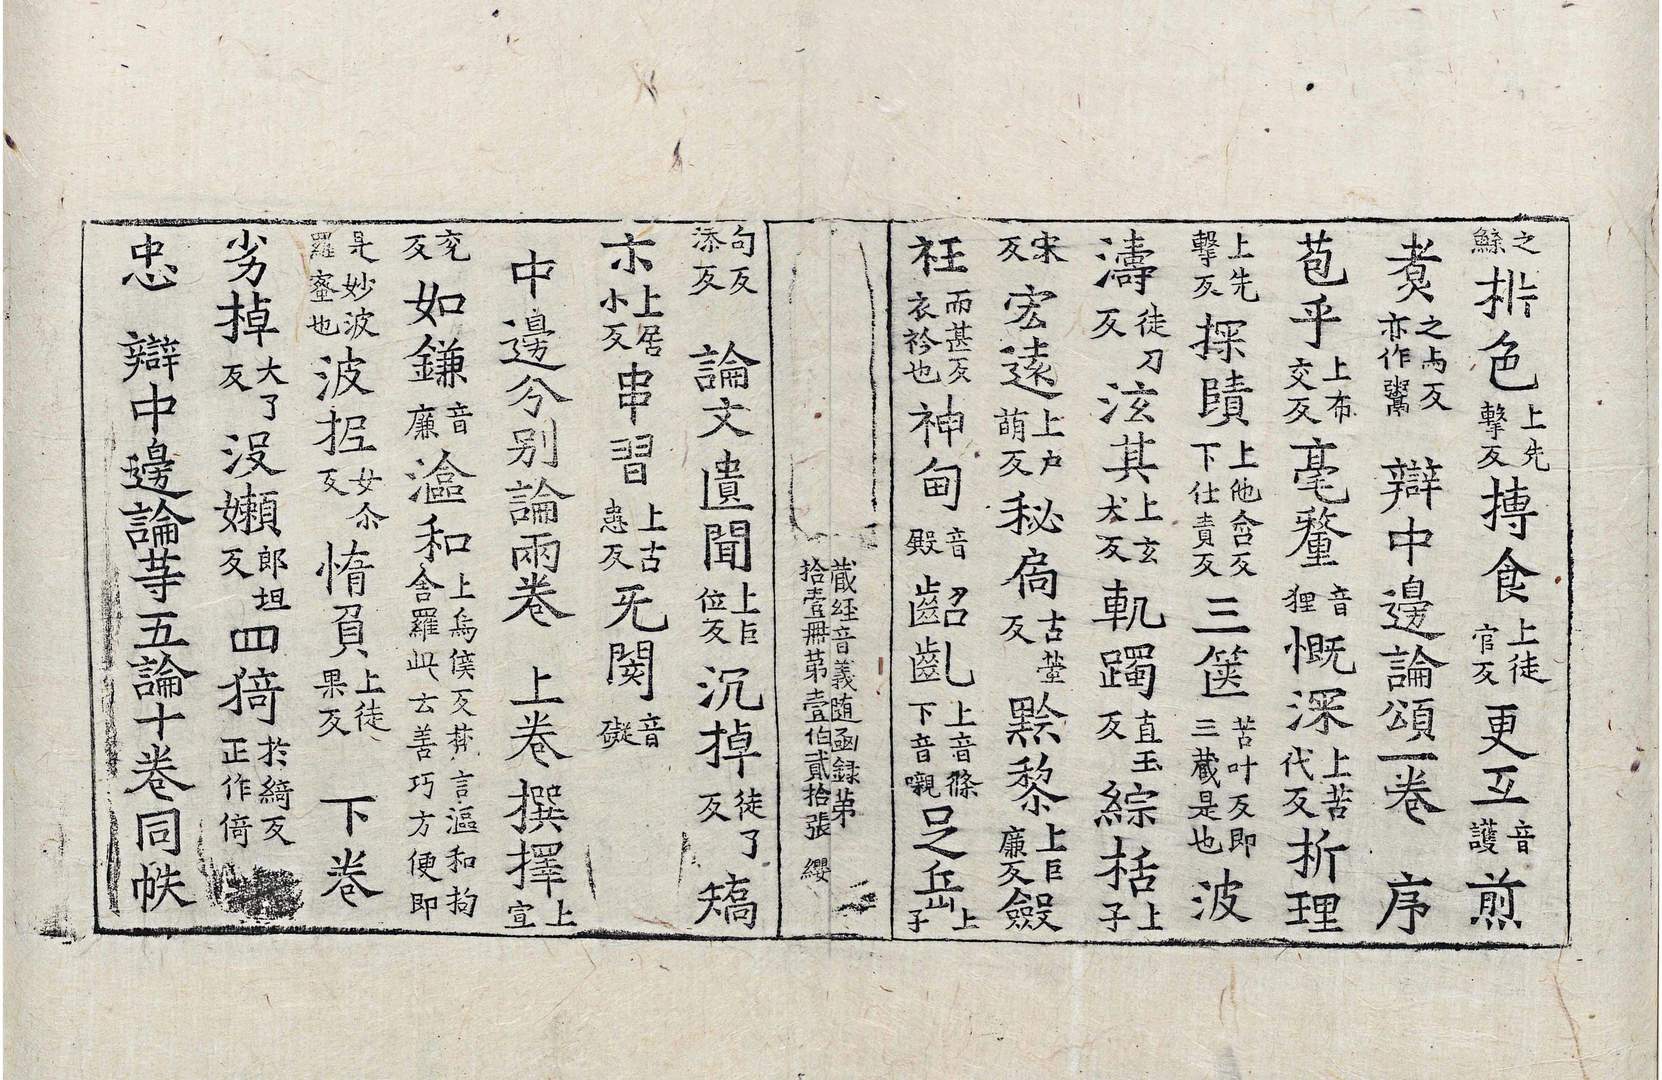 之鯀㭊色上先擊反摶食上徒官反更互音護煎
煑之与反亦作䰞辯中邊論頌一卷序
苞乎上布交反毫釐音狸慨深上苦代反折理
上先擊反探賾上他含反下仕責反三篋苦叶反即三藏是也波
濤徒刀反泫其上玄犬反軌躅直玉反綜栝上子
宋反宏遠上户萌反秘扃古螢反黔黎上巨廉反斂
衽而甚反衣衿也神甸音殿齠齔上音條下音嚫足岳上子
藏經音義随函録第
拾壹冊第壹伯貳拾張 纓
句反添反論文遺聞上巨位反沉掉徒了反矯
朩上居小反串習上古患反旡閡音礙
中邊分别論兩卷 上卷撰擇上宣
兖反如鎌音廉漚和上烏侯反梵言漚和拘舍羅此云善巧方便即
是妙波羅蜜也波抳女尒反惰負上徒果反下卷
劣掉大了反没嬾郎坦反四猗於綺反正作倚
忠 辯中邊論等五論十卷同帙